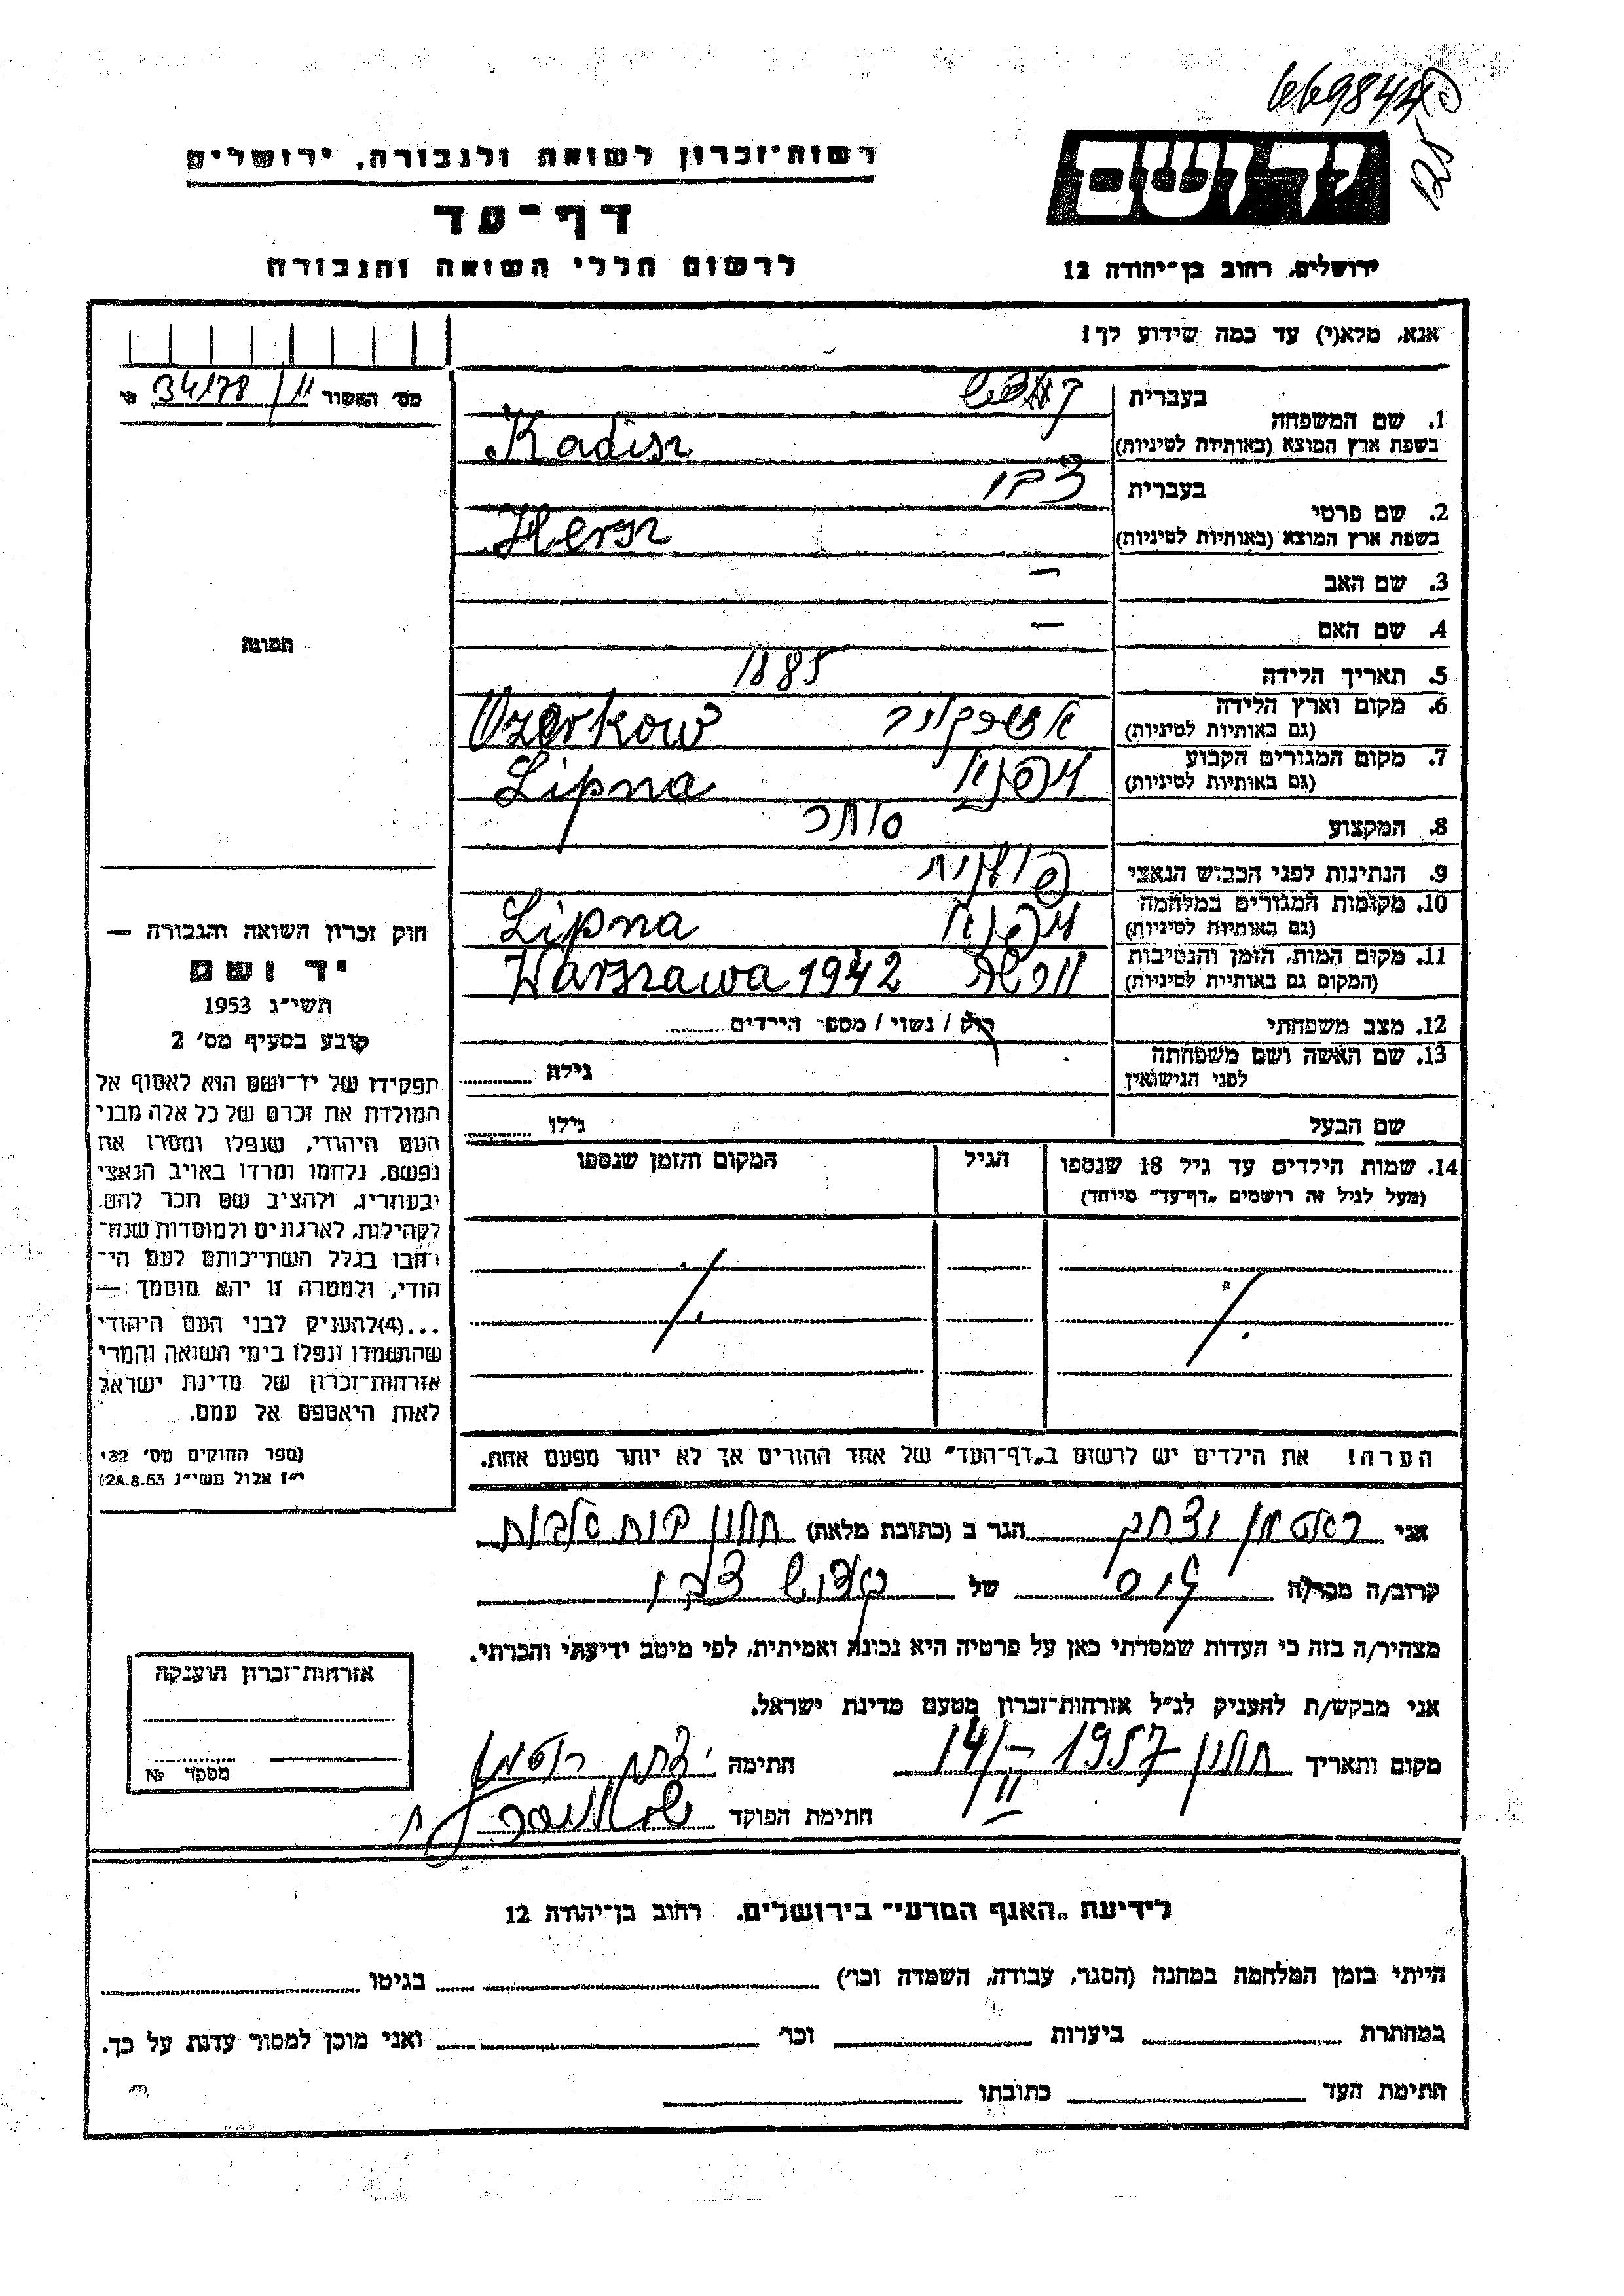 669844
רשות-זכרון לשואה ולגבורה, ירושלים
יד ושם
דף-עד
לרשום חללי השואה והגבורה
ירושלים, רחוב בן-יהודה 12
אנא, מלא(י) עד כמה שידוע לך!
מס' האשור 34178/11
1. שם המשפחה
בעברית
בשפת ארץ המוצא (באותיות לטיניות) Kadisz
2. שם פרטי
בעברית צבי
בשפת ארץ המוצא (באותיות לטיניות) Hersz
3. שם האב —
4. שם האם —
5. תאריך הלידה 1885
6. מקום וארץ הלידה (גם באותיות לטיניות) Ozorkow
7. מקום המגורים הקבוע (גם באותיות לטיניות) Lipna
8. המקצוע סוחר
9. הנתינות לפני הכבוש הנאצי פולנית
10. מקומות המגורים במלחמה (גם באותיות לטיניות) Lipna
11. מקום המות, הזמן והנסיבות (המקום גם באותיות לטיניות) ורשה Warszawa 1942
12. מצב משפחתי רוק / נשוי / מספר הילדים
13. שם האשה ושם משפחתה לפני הנישואין
גילה
שם הבעל
גילו
14. שמות הילדים עד גיל 18 שנספו
(מעל לגיל זה רושמים "דף-עד" מיוחד)
הגיל
המקום והזמן שנספו
הערה! את הילדים יש לרשום ב"דף-העד" של אחד ההורים אך לא יותר מפעם אחת.
תמונה
חוק זכרון השואה והגבורה —
יד ושם
תשי"ג 1953
קובע בסעיף מס' 2
תפקידו של יד-ושם הוא לאסוף אל
המולדת את זכרם של כל אלה מבני
העם היהודי, שנפלו ומסרו את
נפשם, נלחמו ומרדו באויב הנאצי
ובעוזריו, ולהציב שם וזכר להם,
לקהילות, לארגונים ולמוסדות שנח-
רבו בגלל השתייכותם לעם הי-
הודי, ולמטרה זו יהא מוסמך: —
...(4) להעניק לבני העם היהודי
שהושמדו ונפלו בימי השואה והמרי
אזרחות-זכרון של מדינת ישראל
לאות היאספם אל עמם.
(ספר החוקים מס' 132,
י"ז אלול תשי"ג 28.8.53)
אני יצחק הגר ב (כתובת מלאה) חולון
קרוב/ה מכר/ה של קדיש צבי
מצהיר/ה בזה כי העדות שמסרתי כאן על פרטיה היא נכונה ואמיתית, לפי מיטב ידיעתי והכרתי.
אני מבקש/ת להעניק לנ"ל אזרחות-זכרון מטעם מדינת ישראל.
מקום ותאריך חולון 1957 14/II חתימה יצחק
חתימת הפוקד
אזרחות-זכרון הוענקה
מספר №
לידיעת "האגף המדעי" בירושלים, רחוב בן-יהודה 12
הייתי בזמן המלחמה במחנה (הסגר, עבודה, השמדה וכו') בגיטו
במחתרת ביערות וכו' ואני מוכן למסור עדות על כך.
חתימת העד כתובתו